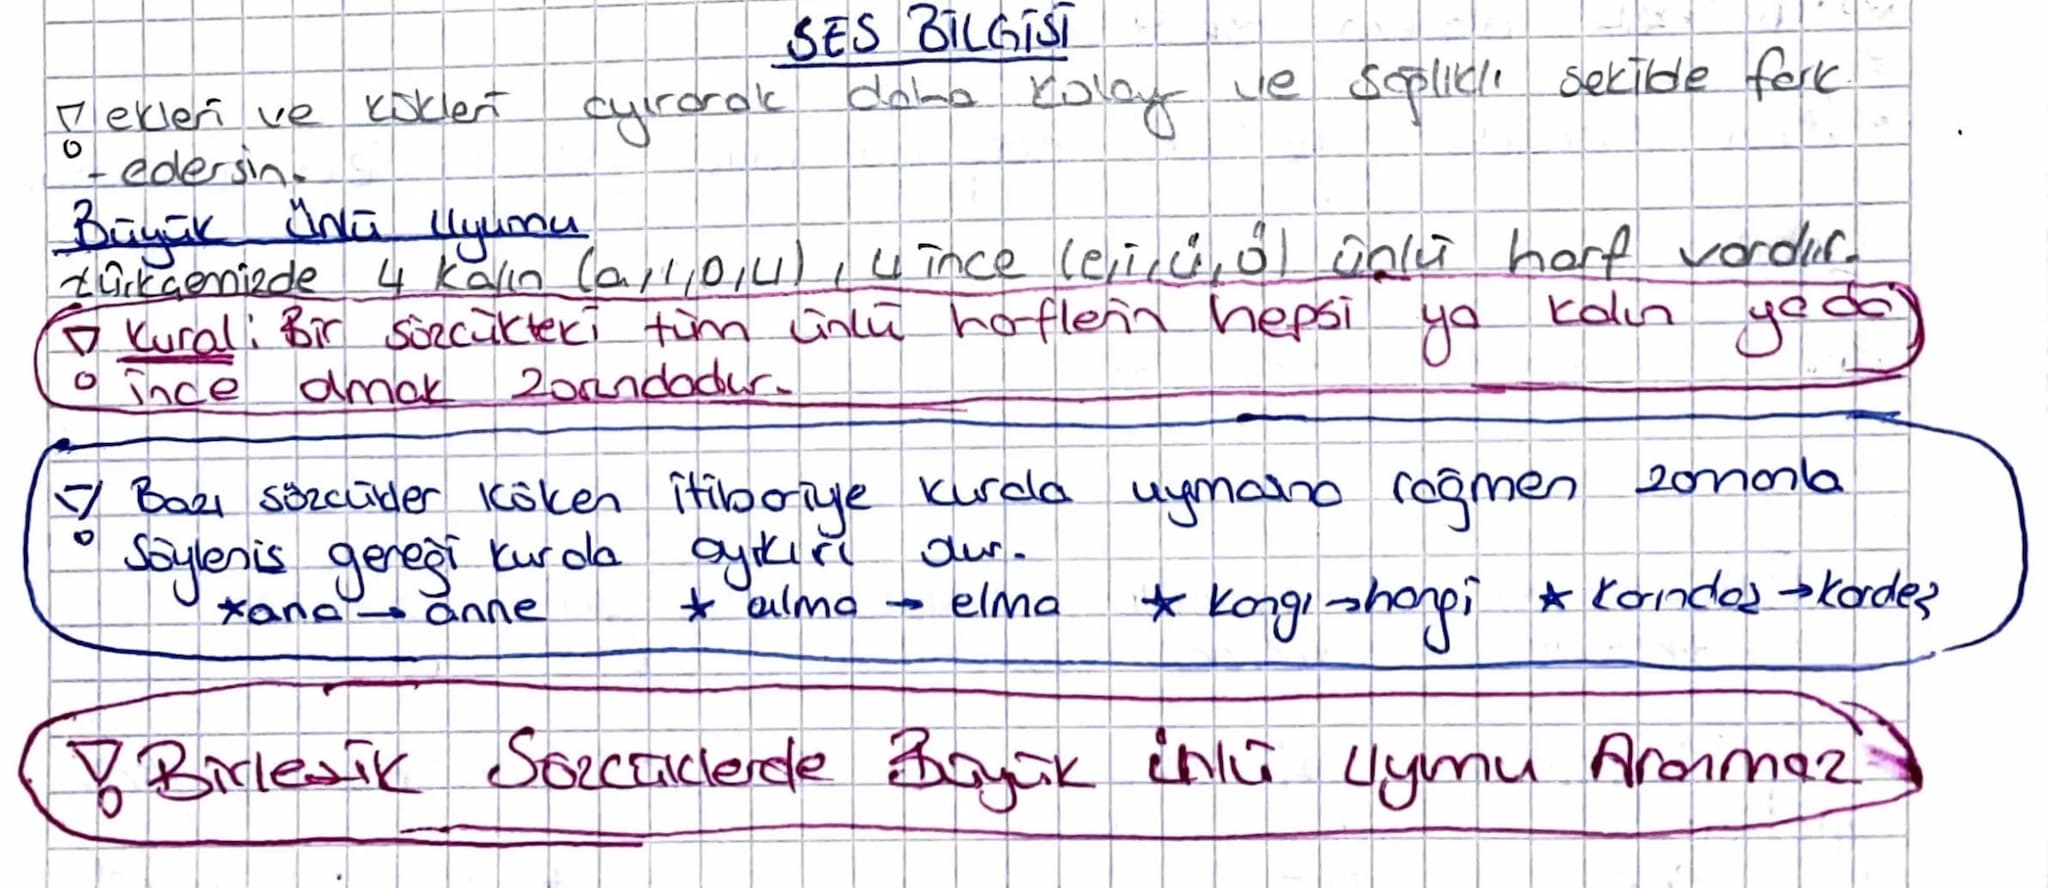 SES BİLGİSİ
! ekleri ve kökleri ayırarak daha kolay ve sağlıklı sekilde fark
- edersin.
Büyük Ünlü Uyumu
türkçemizde 4 kalın (a,ı,o,u), 4 ince (e,i,ü,ö) ünlü harf vardır.
! Kural: Bir sözcükteki tüm ünlü harflerin hepsi ya kalın yada
ince olmak zorundadır.
! Bazı sözcükler köken itibariyle kurala uymasına rağmen zamanla
Söylenis gereği kurala aykırı olur.
*ana → anne ★ alma → elma ★ kangı → hangi ★ karındaş → kardeş
! Birlesik Sözcüklerde Büyük ünlü Uyumu Aranmaz